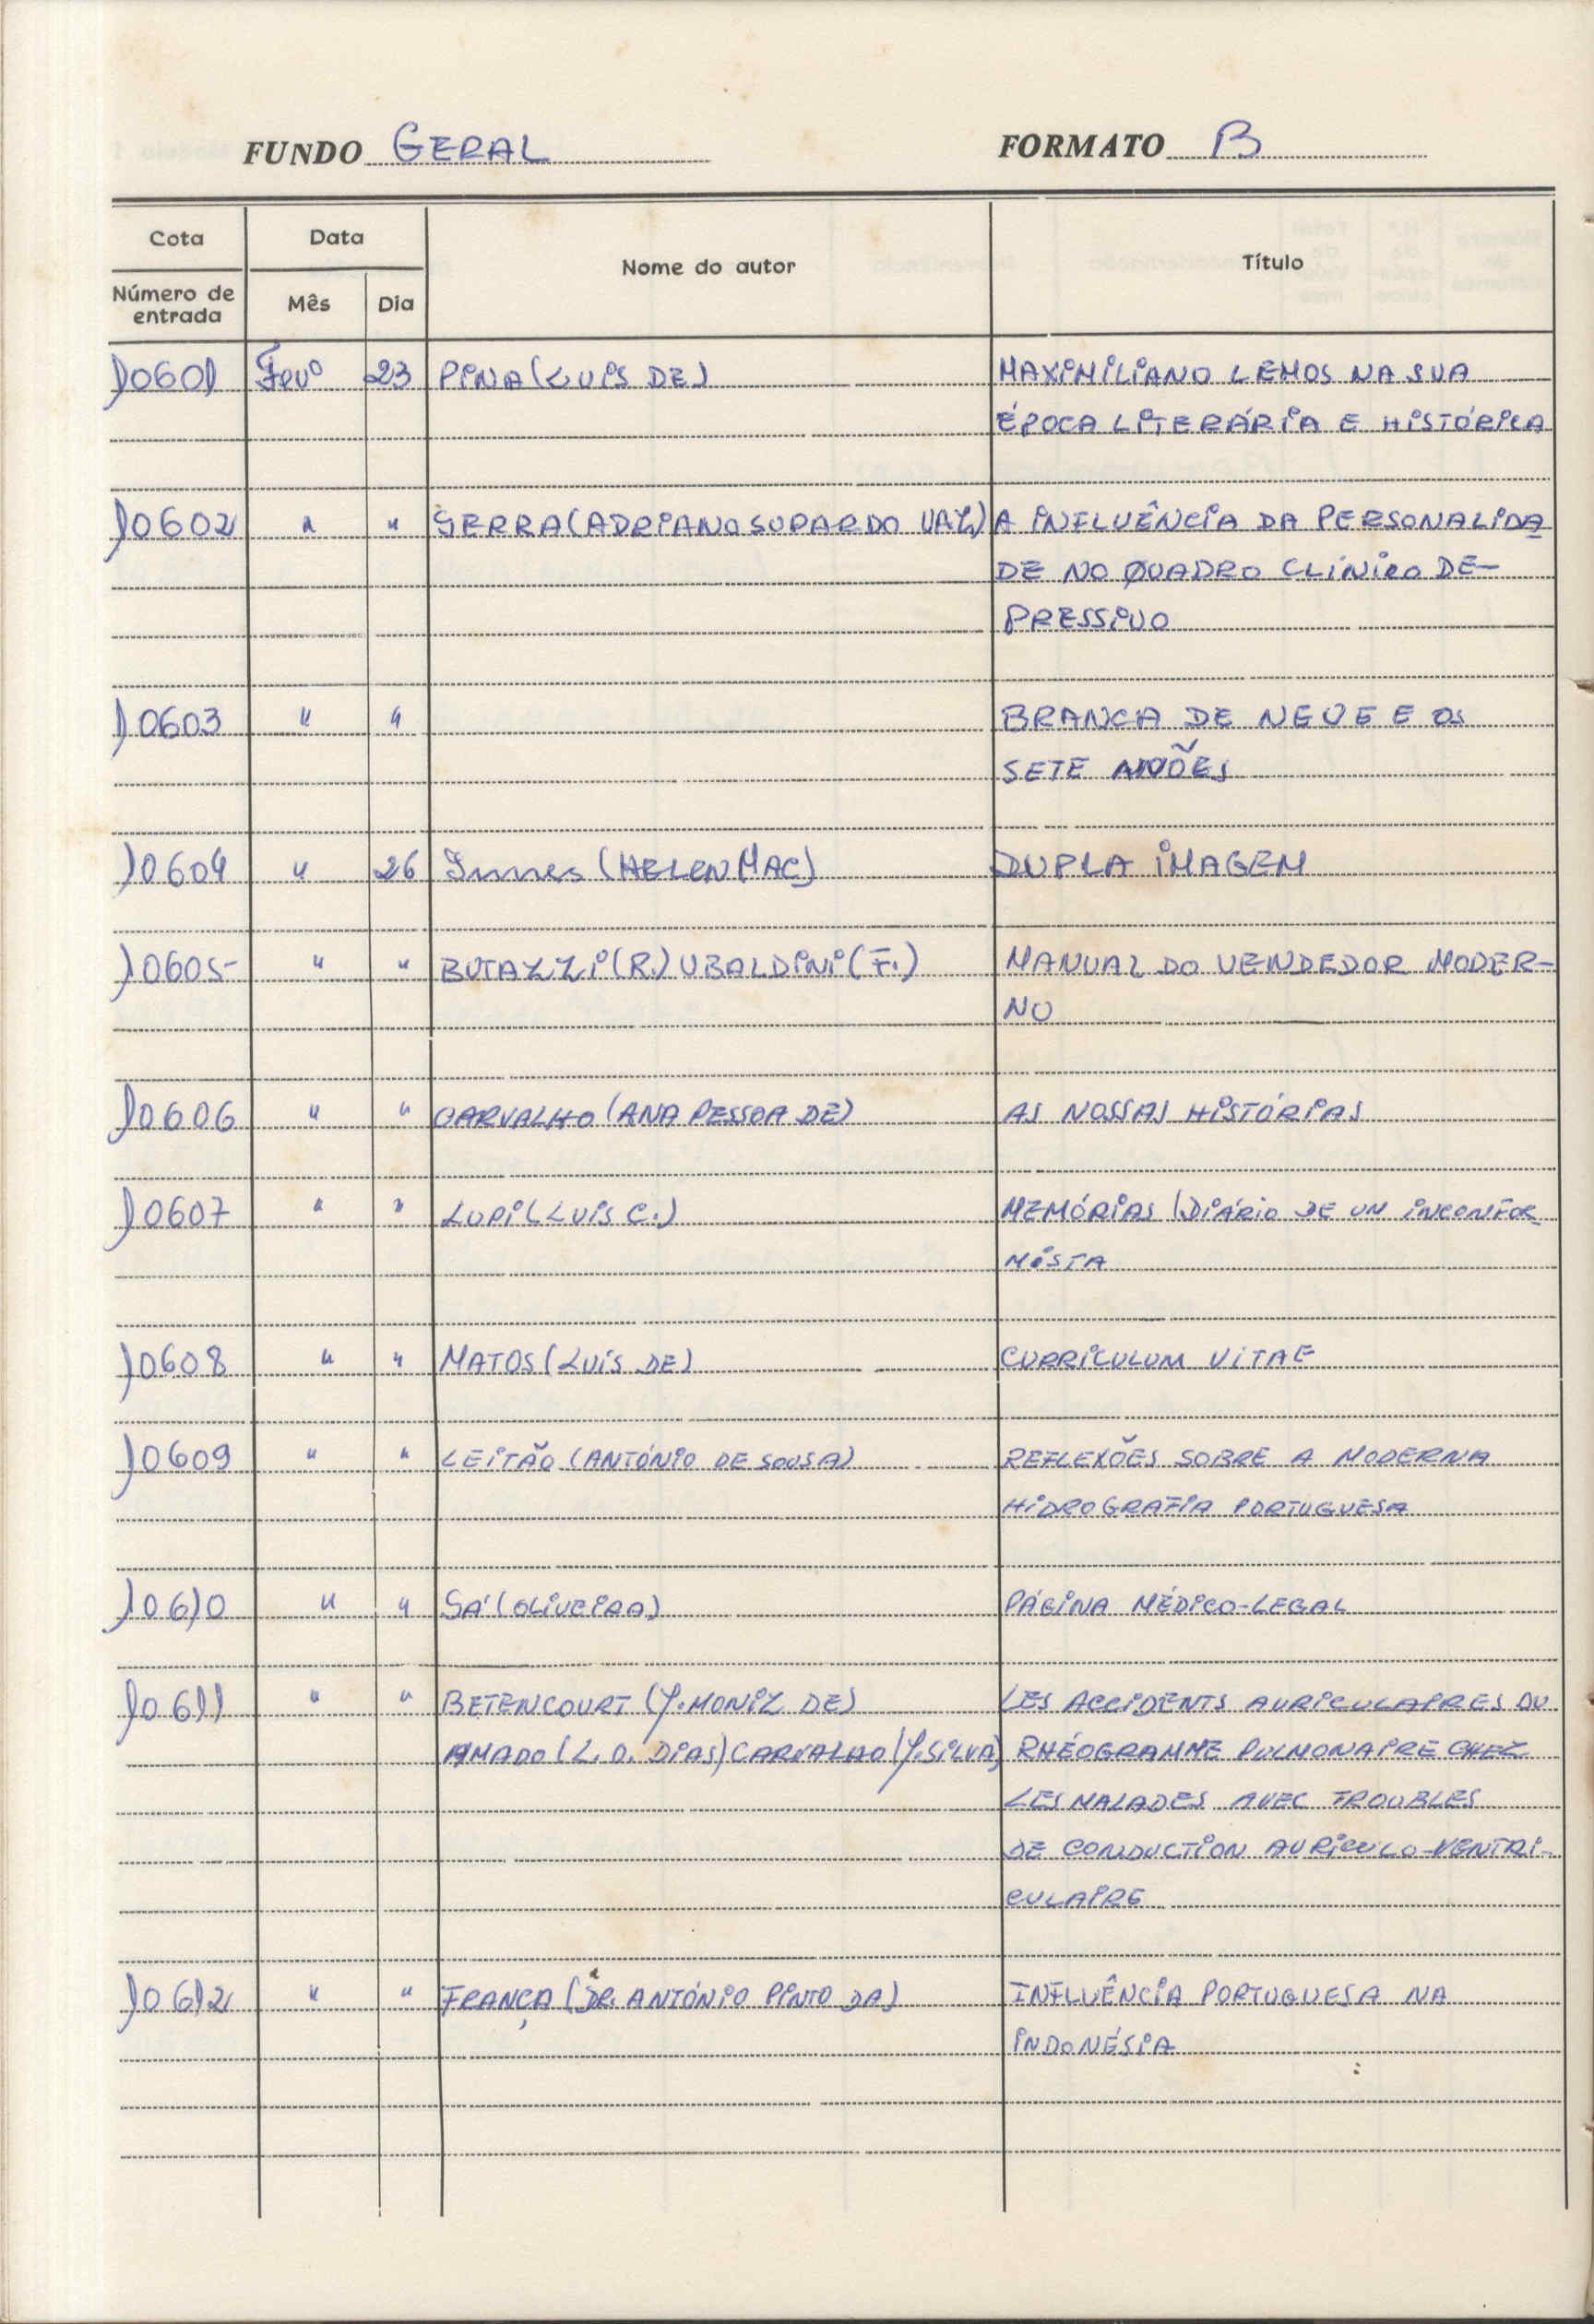 FUNDO GERAL FORMATO B
Cota Data Nome do autor Título
Número de entrada Mês Dia
10601 Fevº 23 PINA (LUIS DE) MAXIMILIANO LEMOS NA SUA
ÉPOCA LITERÁRIA E HISTÓRICA
10602 " " SERRA (ADRIANO SUPARDO VAZ) A INFLUÊNCIA DA PERSONALIDA
DE NO QUADRO CLÍNICO DE-
PRESSIVO
10603 " " BRANCA DE NEVE E OS
SETE ANÕES
10604 " 26 Innes (HELEN MAC) DUPLA IMAGEM
10605 " " BUTAZZI (R.) UBALDINI (F.) MANUAL DO VENDEDOR MODER-
NO
10606 " " CARVALHO (ANA PESSOA DE) AS NOSSAS HISTÓRIAS
10607 " " LUPI (LUIS C.) MEMÓRIAS (DIÁRIO DE UN INCONFOR
MISTA
10608 " " MATOS (LUIS DE) CURRICULUM VITAE
10609 " " LEITÃO (ANTÓNIO DE SOUSA) REFLEXÕES SOBRE A MODERNA
HIDROGRAFIA PORTUGUESA
10610 " " SÁ (OLIVEIRA) PÁGINA MÉDICO-LEGAL
10611 " " BETENCOURT (J. MONIZ DE) LES ACCIDENTS AURICULAIRES DU
AMADO (L. O. DIAS) CARVALHO (J. SILVA) RHÉOGRAMME PULMONAIRE CHEZ
LES MALADES AVEC TROUBLES
DE CONDUCTION AURICULO-VENTRI-
CULAIRE
10612 " " FRANÇA (DR. ANTÓNIO PINTO DA) INFLUÊNCIA PORTUGUESA NA
INDONÉSIA